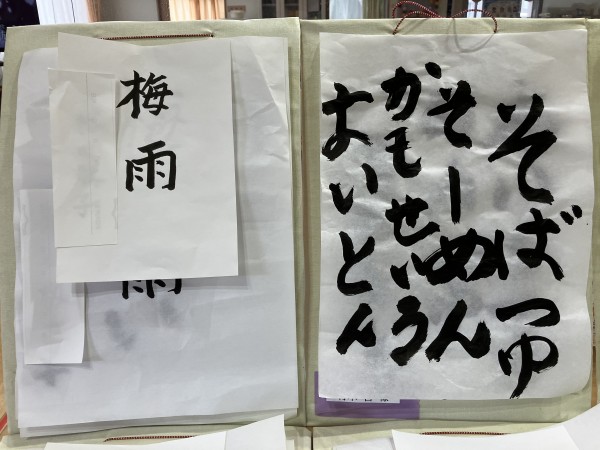 梅雨
雨
そばつゆ
そーめん
かもせいろ
すいとん